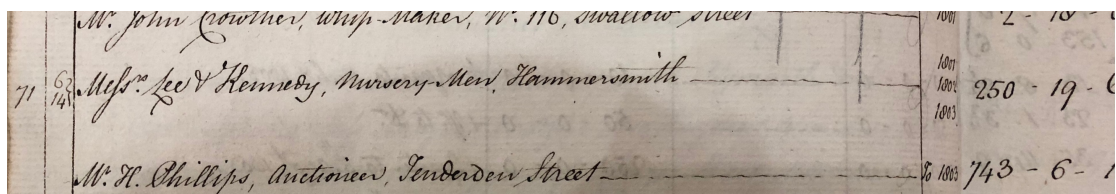 Mr. John Crowther, Whip-Maker, No. 116, Swallow Street 1801 2 - 18 -
71 6 14 } Messrs. Lee & Kennedy, Nursery-Men, Hammersmith 1801 1802 1803 250 - 19 - 6
Mr. H. Phillips, Auctioneer, Tenderden Street To 1803 743 - 6 -